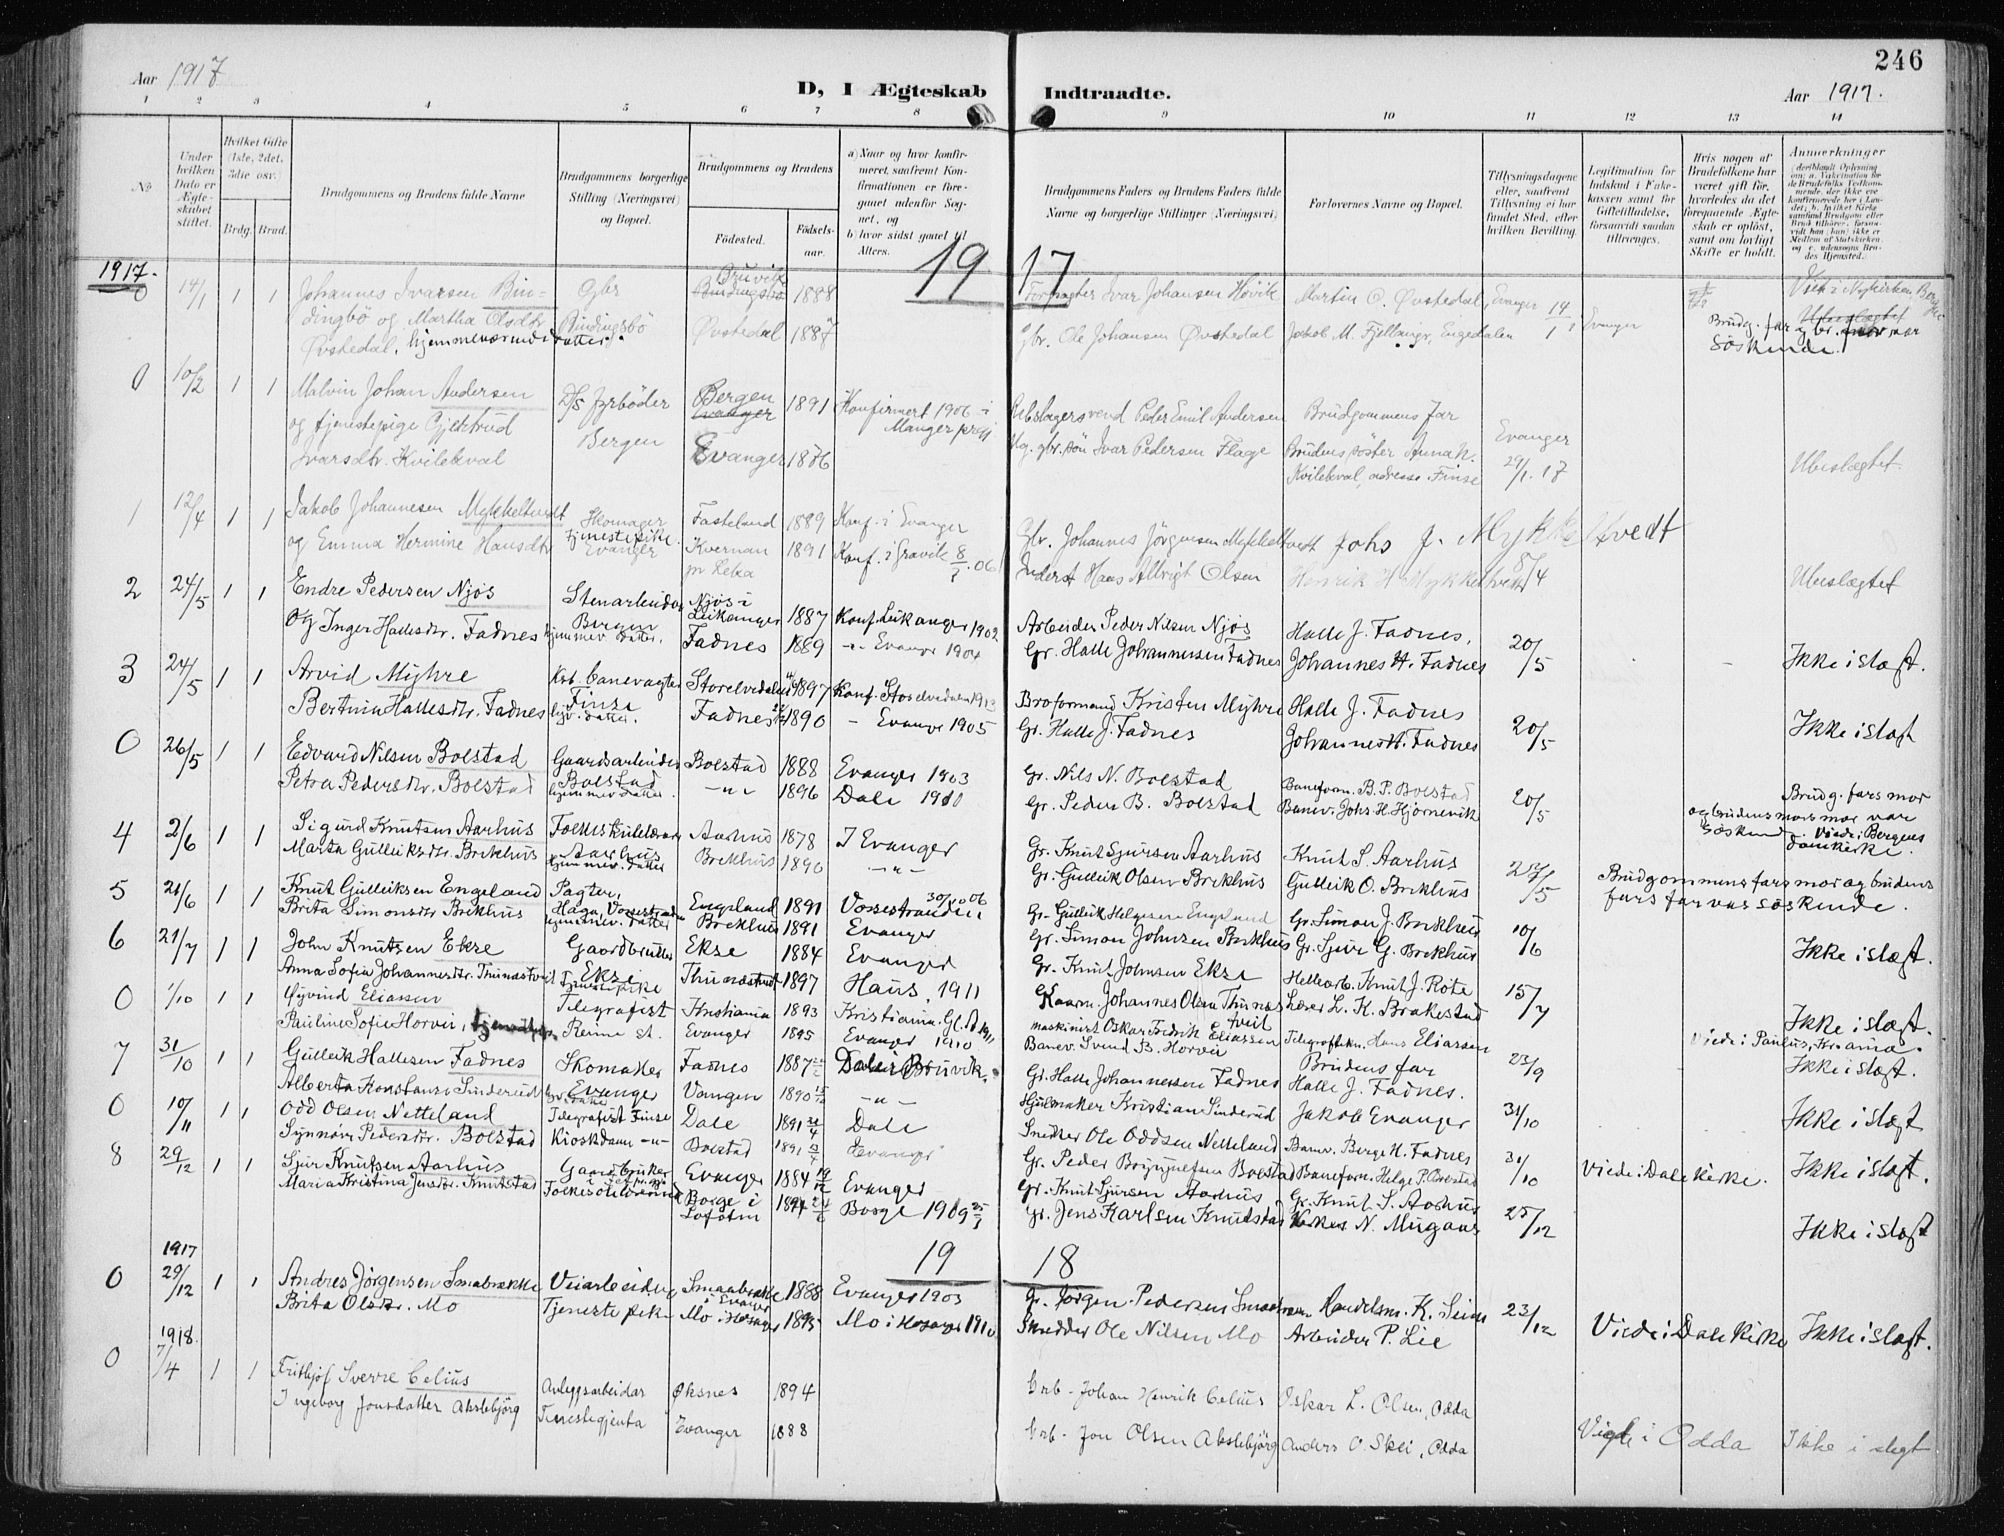 246
Aar 1917
D, I Ægteskab Indtraadte.
Aar 1917.
1 2 3 4 5 6 7 8 9 10 11 12 13 14
No
Under hvilken Dato er Ægteskabet stiftet.
Hvilket Gifte (1ste, 2det, 3die osv.
Brdg. Brud.
Brudgommens og Brudens fulde Navne
Brudgommens borgerlige Stilling (Næringsvei) og Bopæl.
Brudgommens og Brudens
Födested. Födselsaar.
a) Naar og hvor konfirmeret, saafremt Konfirmationen er foregaaet udenfor Sognet, og
b) hvor sidst gaaet til Alters.
Brudgommens Faders og Brudens Faders fulde Navne og borgerlige Stillinger (Næringsvei)
Forlovernes Navne og Bopæl.
Tillysningsdagene eller, saafremt Tillysning ei har fundet Sted, efter hvilken Bevilling.
Legitimation for Indskud i Enkekassen samt for Giftetilladelse, forsaavidt saadan tiltrænges.
Hvis nogen af Brudefolkene har været gift för, hvorledes da det foregaaende Ægteskab er oplöst, samt om lovligt Skifte er holdt.
Anmerkninger
1917.
19 17
0 14/1 1 1 Johannes Ivarsen Bin- Gbr Bruvik 1888 Forpagter Ivar Johansen Høvik Martin O. Øvstedal, Evanger 14/1 Evanger
dingbø og Martha Olsdtr Bindingsbö Øvstedal 1887 Gbr. Ole Johansen Øvstedal Jakob M. Fjellanger, Engedalen Brudg. far
Øvstedal, hjemmeværende datter. Söskende.
0 10/2 1 1 Malvin Johan Andersen D/S fyrböder Bergen 1891 Konfirmert 1906 i Rebslagersvend Peder Emil Andersen Brudgommens far
og tjenestepige Gjertrud Manger prgj Evanger
Ivarsdtr. Kvilekval Bergen Evanger 1876 Ug. gbr. sön Ivar Pedersen Flage Brudens söster Anna K. 29/1.17 Ubeslægtet
Kvilekval, adresse Finse
1 12/4 1 1 Jakob Johannesen Mykkeltvedt Skomager Fasteland 1889 Konf. i Evanger Gbr. Johannes Jörgensen Mykkeltvedt Johs J. Mykkeltvedt
og Emma Hermine Hansdtr Tjenestepike. Evanger Kvernan 1891 Konf. i Gravik 8/7.06 Inderst Hans Albrigt Olsen Henrik H Mykkeltvedt 8/4 Ubeslægtet
pr Leka
2 24/5 1 1 Endre Pedersen Njøs Stenarbeider Njøs i Leikanger 1887 Konf. Leikanger 1902 Arbeider Peder Nilsen Njøs Halle J. Fadnes, 20/5
Og Inger Hallesdtr. Fadnes Bergen hjemmev. datter. Fadnes 1889 -"- Evanger 1904 Gr. Halle Johannessen Fadnes Johannes H. Fadnes Ikke i slægt.
3 24/5 1 1 Arvid Myhre Kst. banevagter Storelvedalen 1897 Konf. Storelvedalen 1913 Broformand Kristen Myhre Halle J. Fadnes
Bertina Hallesdtr. Fadnes Finse hjv. datter. Fadnes 1890 - Evanger 1905 Gr. Halle J. Fadnes Johannes H. Fadnes 20/5 Ikke i slægt
0 26/5 1 1 Edvard Nilsen Bolstad Gaardsarbeider Bolstad 1888 Evanger 1903 Gr. Nils N. Bolstad Baneform. B. P. Bolstad 20/5
Petra Pedersdtr. Bolstad Bolstad hjemmev. datter. -"- 1896 Dale 1910 Gr. Peder B. Bolstad Banev. Johs. H. Hjørnevik Brudg. fars mor
og brudens mors mor var søskend. Viede i Bergens domkirke.
4 2/6 1 1 Sigurd Knutsen Aarhus Folkeskulelærar Aarhus 1878 I Evanger Gr. Knut Sjursen Aarhus Knut S. Aarhus
Marta Gulleiksdtr. Brekhus Aarhus hjemmev. datter Brekhus 1890 -"- Gr. Gulleik Olsen Brekhus Gulleik O. Brekhus 27/5 Brudgommens fars mor og brudens
5 21/6 1 1 Knut Gulleiksen Engeland Pagter, Engeland 1891 Vossestranden 30/10 06 Gr. Gulleik Helgesen Engeland Gr. Simon J. Brekhus fars far var søskende.
Brita Simonsdtr Brekhus Haga, Vossestranden hjemmev. datter Brekhus 1891 Evanger Gr. Simon Johnsen Brekhus Gr. Sjur G. Brekhus 10/6 Ikke i slægt.
6 21/7 1 1 John Knutsen Ekse Gaardbruker Ekse 1884 Evanger Gr. Knut Johnsen Ekse Hellearb. Knut J. Rote
Anna Sofie Johannesdtr. Thunestveit Ekse Tjenestepike Thunestveit 1897 Haus, 1911 Gaarm. Johannes Olsen Thunestveit Lærer L. K. Brakestad 15/7 Ikke i slægt.
0 1/10 1 1 Øyvind Eliassen Telegrafist Kristiania 1893 Kristiania. Gl. A 1911 maskinist Oskar Fredrik Eliassen Telegrafbtn. Hans Eliassen Viede i Paulus, Kr.ania.
Pauline Sofie Horvei, Reime st. Evanger 1895 Evanger 1910 Banev. Svend B. Horvei Brudens far 23/9 Ikke i slægt.
7 31/10 1 1 Gulleik Hallesen Fadnes Skomaker Fadnes 1887 Dale i Bruvik. Gr. Halle Johannessen Fadnes Halle J. Fadnes.
Alberta Konstanse Sinderud Evanger Vangen 1890 -"- Hjulmaker Kristian Sinderud Jakob Evanger 31/10 Ikke i slægt
0 10/11 1 1 Odd Olsen Netteland Telegrafist Finse Dale 1891 Dale Snedker Ole Oddsen Netteland Banev. Berge H. Fadnes
Synnøve Pedersdtr. Bolstad Kioskdame -"- Bolstad 1891 Evanger Gr. Peder Brynjulfsen Bolstad Baneform. Helge P. Bolstad 31/10 Viede i Dale kirke. Ikke i slægt.
8 29/12 1 1 Sjur Knutsen Aarhus Gaardbruker Evanger 1884 Evanger Gr. Knut Sjursen Aarhus Gr. Knut S. Aarhus
Maria Kristina Jensdtr. Knutstad Folkeskolelærerinde Borge i Lofoten 1894 Borge 1909 Gr. Jens Karlsen Knutstad Kirkes. N. Mugaas 25/12 Ikke i slægt
19 18
1917
0 29/12 1 1 Andres Jörgensen Smabrekke Veiarbeider Smaabrekke i Evanger 1888 Evanger 1903 Gr. Jørgen Pedersen Smabrekke Handelsm. K. Seim 23/12
Brita Olsdtr. Mo Tjenestepik Mo i Mosanger 1895 Mo i Hosanger 1910 Skredder Ole Nilsen Mo Arbeider P. Lie Viede i Dale kirke Ikke i slægt.
1918.
0 7/4 1 1 Fritbjof Sverre Celius Anleggsarbeidar Øksnes 1894 Grb - Johan Henrik Celius Oskar L. Olsen, Odda
Ingeborg Jonsdatter Akslebjörg Tenestegjenta Evanger 1888 Grb - Jon Olsen Akslebjörg Anders O. Skei, Odda Vigde i Odda Ikke i slegt